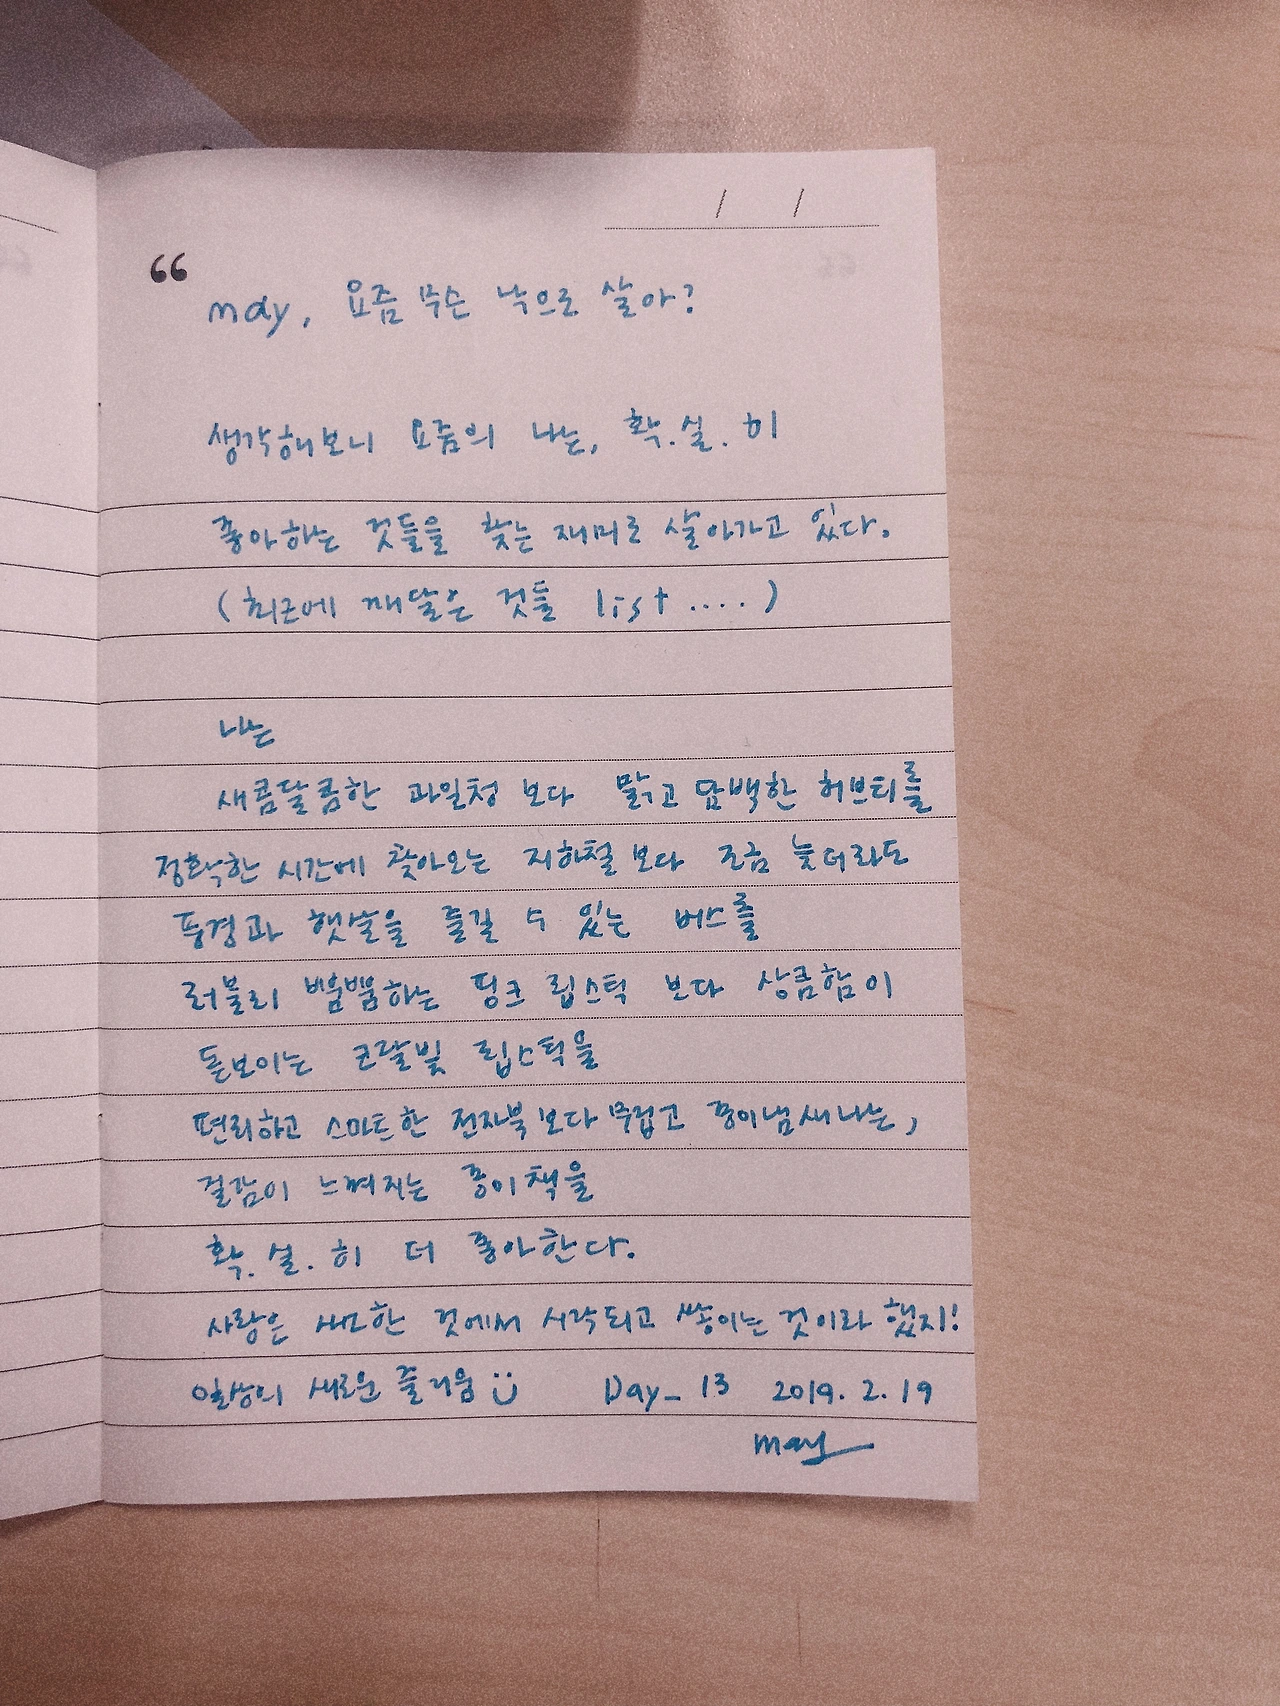 / /
“
may, 요즘 무슨 낙으로 살아?
생각해보니 요즘의 나는, 확.실.히
좋아하는 것들을 찾는 재미로 살아가고 있다.
(최근에 깨달은 것들 list ....)
나는
새콤달콤한 과일청 보다 맑고 담백한 허브티를
정확한 시간에 찾아오는 지하철 보다 조금 늦더라도
풍경과 햇살을 즐길 수 있는 버스를
러블리 뿜뿜하는 핑크 립스틱 보다 상큼함이
돋보이는 코랄빛 립스틱을
편리하고 스마트한 전자북 보다 무겁고 종이냄새나는,
질감이 느껴지는 종이책을
확.실.히 더 좋아한다.
사랑은 사소한 것에서 시작되고 쌓이는 것이라 했지!
일상의 새로운 즐거움 Day_ 13 2019. 2. 19
may